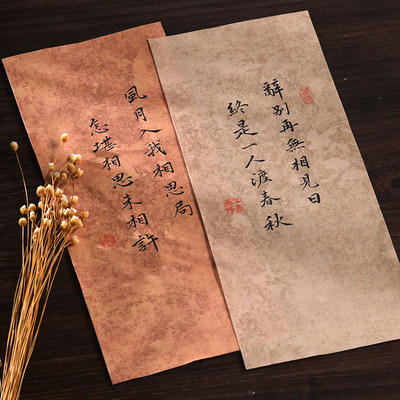 辭別再無相見日
終是一人渡春秋
風月入我相思局
怎堪相思未相許